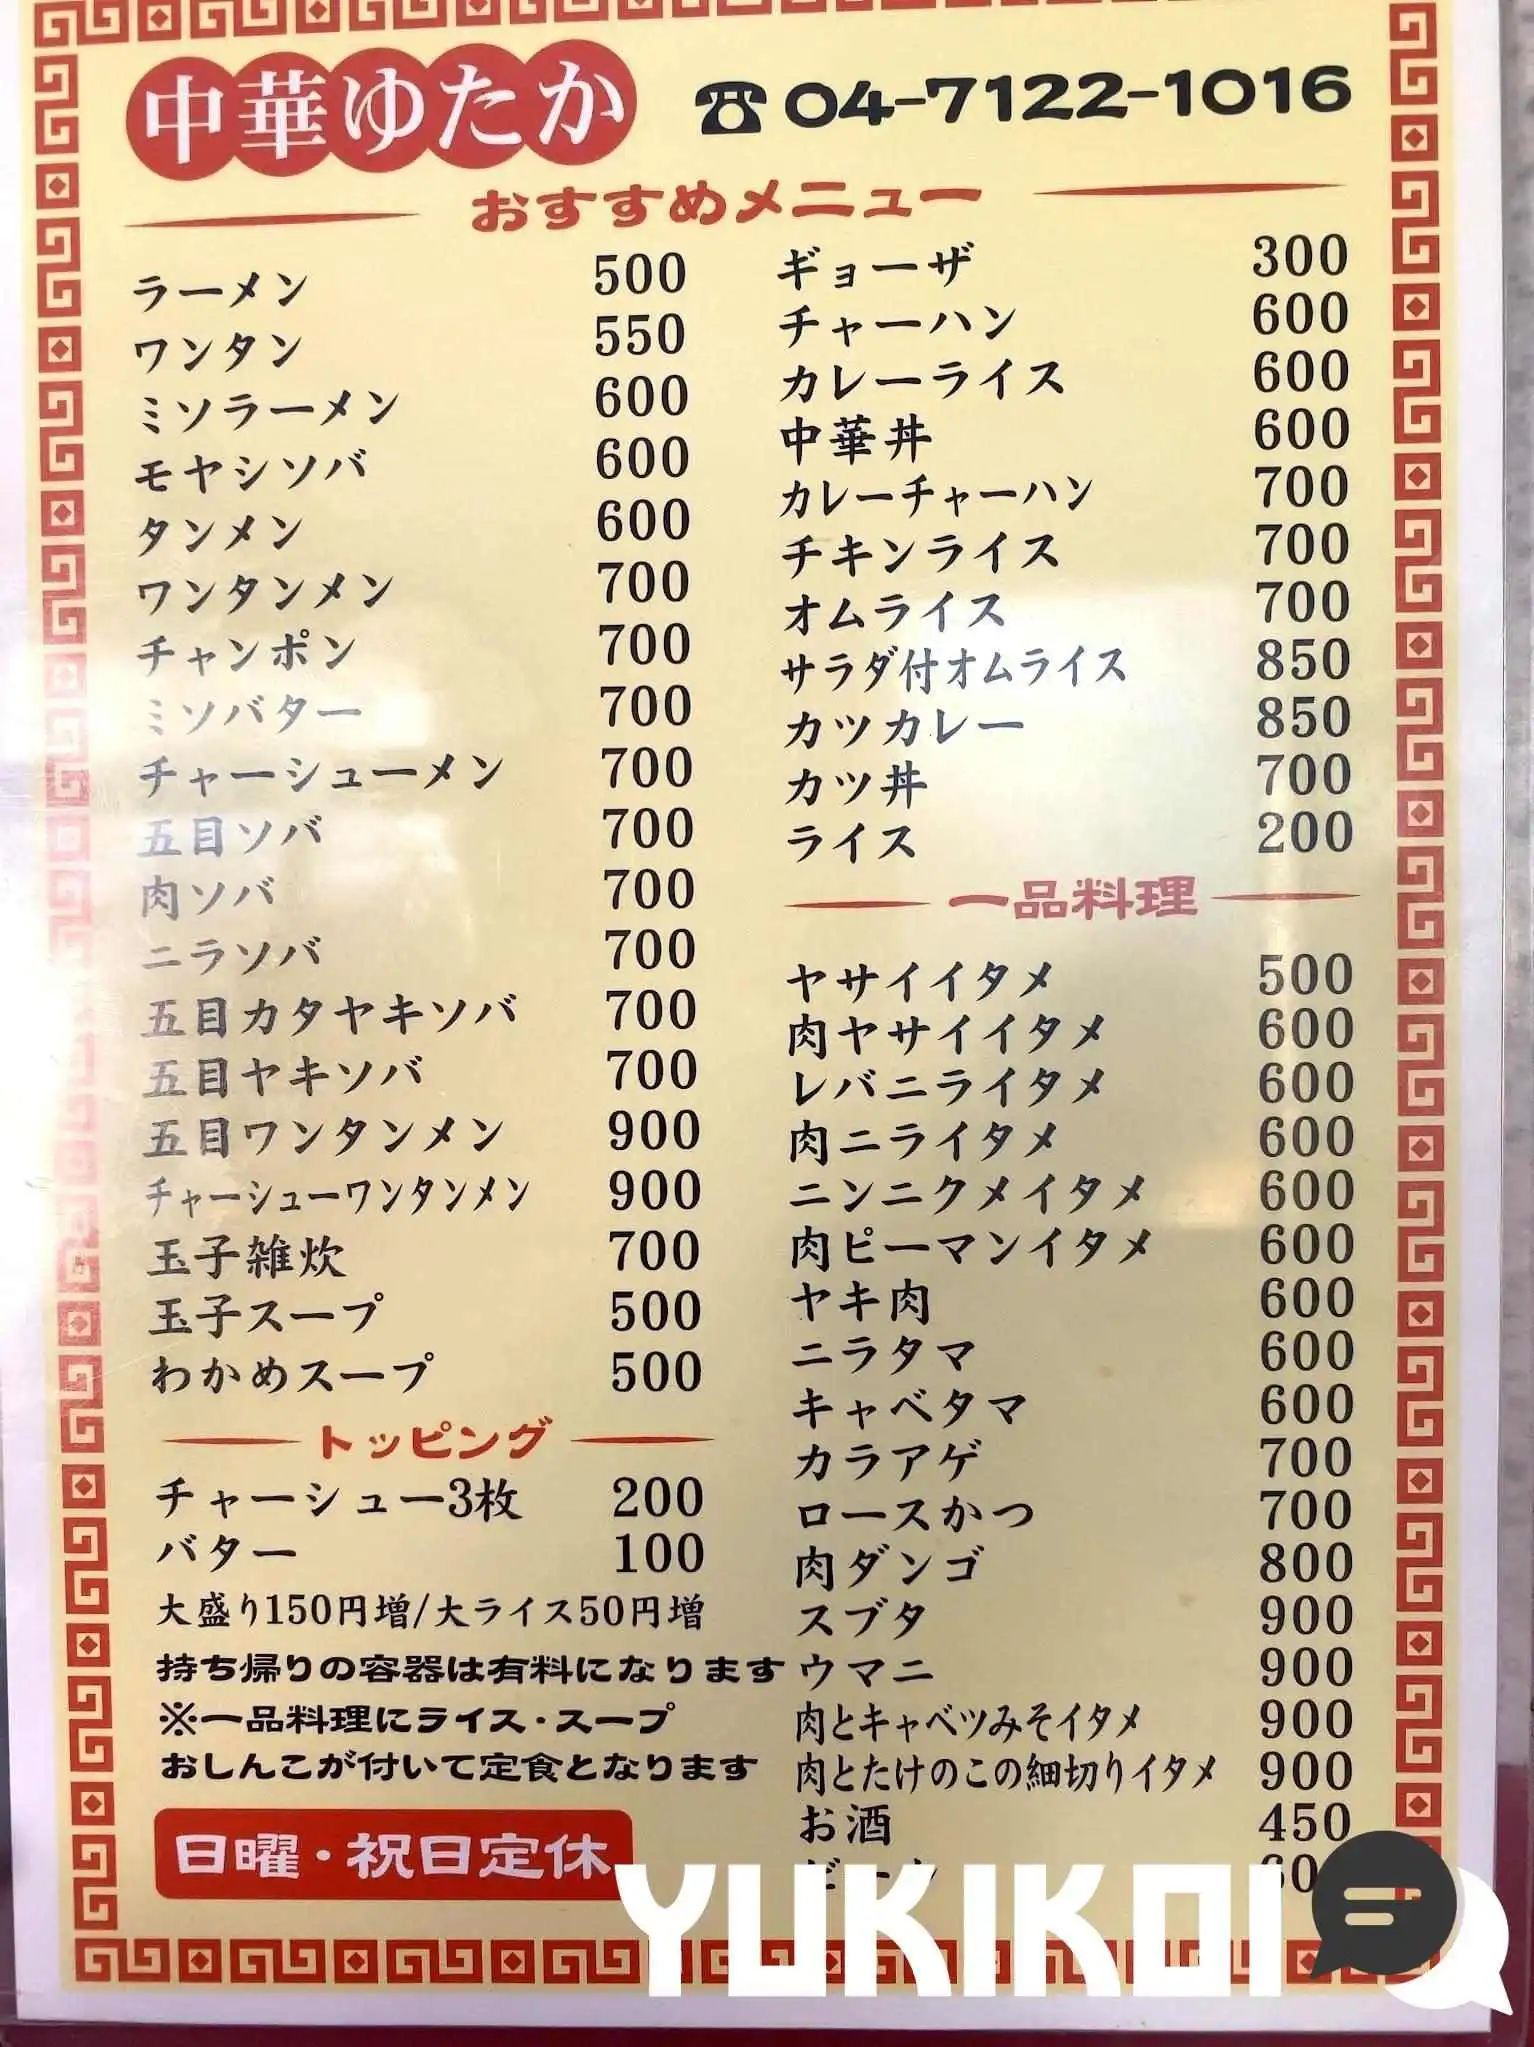 中華ゆたか ☎04-7122-1016
おすすめメニュー
ラーメン 500
ワンタン 550
ミソラーメン 600
モヤシソバ 600
タンメン 600
ワンタンメン 700
チャンポン 700
ミソバター 700
チャーシューメン 700
五目ソバ 700
肉ソバ 700
ニラソバ 700
五目カタヤキソバ 700
五目ヤキソバ 700
五目ワンタンメン 900
チャーシューワンタンメン 900
玉子雑炊 700
玉子スープ 500
わかめスープ 500
トッピング
チャーシュー3枚 200
バター 100
大盛り150円増/大ライス50円増
持ち帰りの容器は有料になります
※一品料理にライス・スープ
おしんこが付いて定食となります
日曜・祝日定休
ギョーザ 300
チャーハン 600
カレーライス 600
中華丼 600
カレーチャーハン 700
チキンライス 700
オムライス 700
サラダ付オムライス 850
カツカレー 850
カツ丼 700
ライス 200
一品料理
ヤサイイタメ 500
肉ヤサイイタメ 600
レバニライタメ 600
肉ニライタメ 600
ニンニクメイタメ 600
肉ピーマンイタメ 600
ヤキ肉 600
ニラタマ 600
キャベタマ 600
カラアゲ 700
ロースかつ 700
肉ダンゴ 800
スブタ 900
ウマニ 900
肉とキャベツみそイタメ 900
肉とたけのこの細切りイタメ 900
お酒 450
YUKIKOI